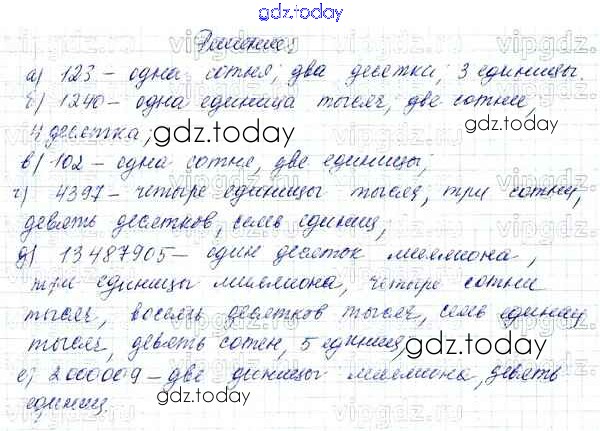 gdz.today
Решение:
а) 123 – одна сотня, два десятки, 3 единицы.
б) 1240 – одна единица тысяч, две сотни,
4 десятка,
в) 102 – одна сотня, две единицы,
г) 4397 – четыре единицы тысяч, три сотни,
девять десятков, семь единиц,
д) 13487905 – один десяток миллиона,
три единицы миллиона, четыре сотни
тысяч, восемь десятков тысяч, семь единиц
тысяч, девять сотен, 5 единиц,
е) 2000009 – две единицы миллиона, девять
единиц.
gdz.today
gdz.today
gdz.today
gdz.today
vipgdz.ru